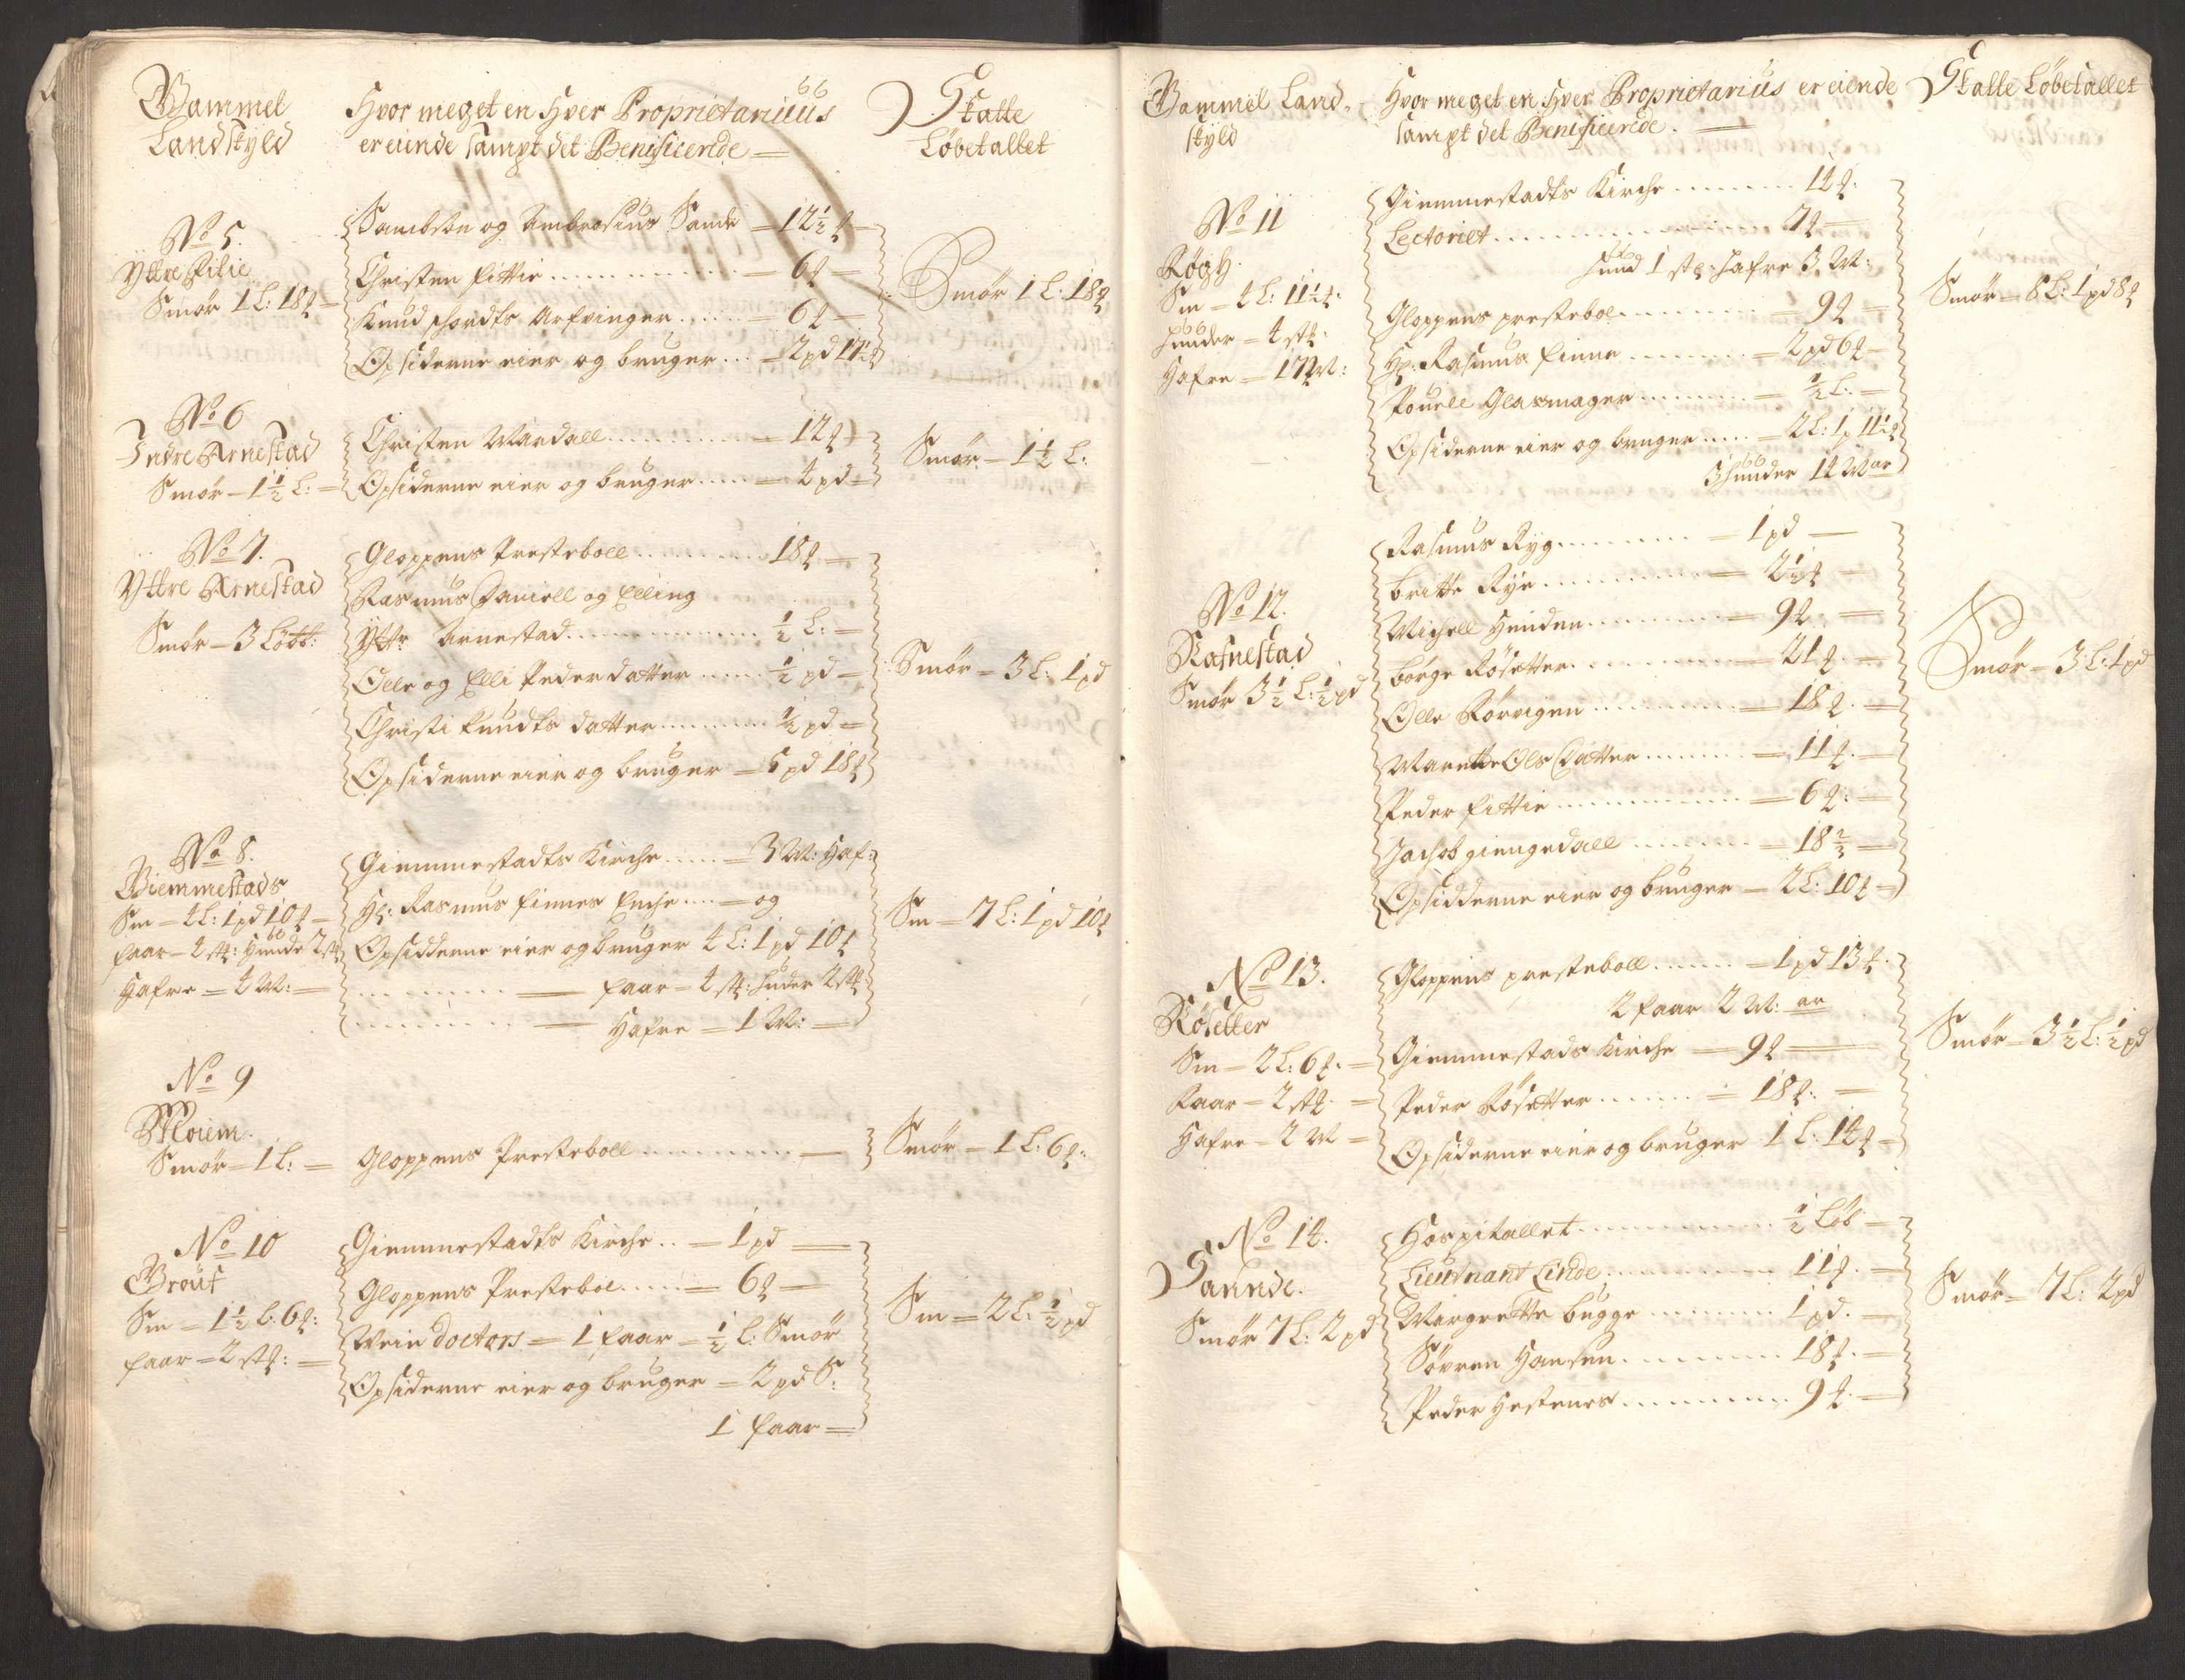 Gammel
Landskyld
Hvor meget en Hver Proprietariuus
er eiende sampt det Benificerede
Skatte
Løbetallet
No 5.
Yttre Eilie
Smør 1 L: 18 ℔
Sambson og Ambrosius Sande 12½ ℔
Christen fittie 6 ℔
Knud fhordts Arfvinger 6 ℔
Opsiderne eier og bruger 2 pd 11½ ℔
Smør 1 L: 18 ℔
No 6
Indre Arnestad
Smør 1½ L:
Christen Wardall 12 ℔
Opsiderne eier og bruger 4 pd
Smør 1½ L:
No 7.
Yttre Arnestad
Smør 3 Løbb:
Gloppens Presteboll 18 ℔
Rasmus Daniell og Elling
Yttr Arnestad ½ L:
Olle og Elli Pederdatter ½ pd
Christi Knudts datter ½ pd
Opsiderne eier og bruger 5 pd 18 ℔
Smør 3 L: 1 pd
No 8.
Giemmestads
Sm 4 L: 1 pd 10 ℔
faar 4 stk: Hunde 2 stk
Hafre 4 W:
Giemmestadts Kirche 3 W: Haf:
Hr: Rasmus finnes Enche og
Opsidderne eier og bruger 4 L: 1 pd 10 ℔
faar 4 stk: huder 2 stk:
Hafre 1 W:
Sm 7 L: 1 pd 10 ℔
No 9
Moiem.
Smør 1 L:
Gloppens Presteboll
Smør 1 L: 6 ℔:
No 10
Grouf
Sm 1½ L: 6 ℔:
faar 2 stk:
Giemmestadts Kirche 1 pd
Gloppens Presteboe 6 ℔
Wein doctors 1 faar ½ L: Smør
Opsiderne eier og bruger 2 pd S:
1 faar
Sm 2 L: ½ pd
Gammel Land-
skyld
Hvor meget en Hver Proprietarius er eiende
sampt det Benificerede.
Skatte Løbetallet
No 11
Røgh.
Sm 4 L: 11½ ℔:
huuder 4 stk:
Hafre 17 W:
Giemmestadts Kirche 14 ℔:
Lectoriet 7 ℔
huud 1 stk: Hafre 3 W:
Gloppens presteboe 9 ℔
Hr: Rasmus finne 2 pd 6 ℔
Pouell Glasmager ½ L:
Opsiderne eier og bruger 2 L: 1 p 11½ ℔
3 huuder 14 W ar
Smør 8 L: 1 pd 8 ℔
No 12.
Rafnestad
Smør 3½ L: ½ pd
Rasmus Ryg 1 pd
britte Rye 2½ ℔
Michell Henden 9 ℔
børge Røsetter 21 ℔
Olle Rørvigen 18 ℔
Marette Ols Datter 11 ℔
Peder fittie 6 ℔:
Jachob giengedall 18⅔
Opsidderne eier og bruger 2 L: 10 ℔
Smør 3 L: 1 pd
No 13.
Røsetter
Sm 2 L: 6 ℔.
Faar 2 stk.
Hafre 2 W
Gloppens presteboll 1 pd 13 ℔.
2 faar 2 W: ar
Giemmestads Kirche 9 ℔
Peder Røsetter 18 ℔:
Opsiderne eier og bruger 1 L: 14 ℔
Smør 3½ L: ½ pd
No 14.
Sannde.
Smør 7 L: 2 pd
Hospitallet ½ Løb
Lieutnant Linde 11 ℔.
Margrette bugge 1 pd.
Søvren Hansen 18 ℔.
Peder Hestenes 9 ℔.
Smør 7 L: 2 pd